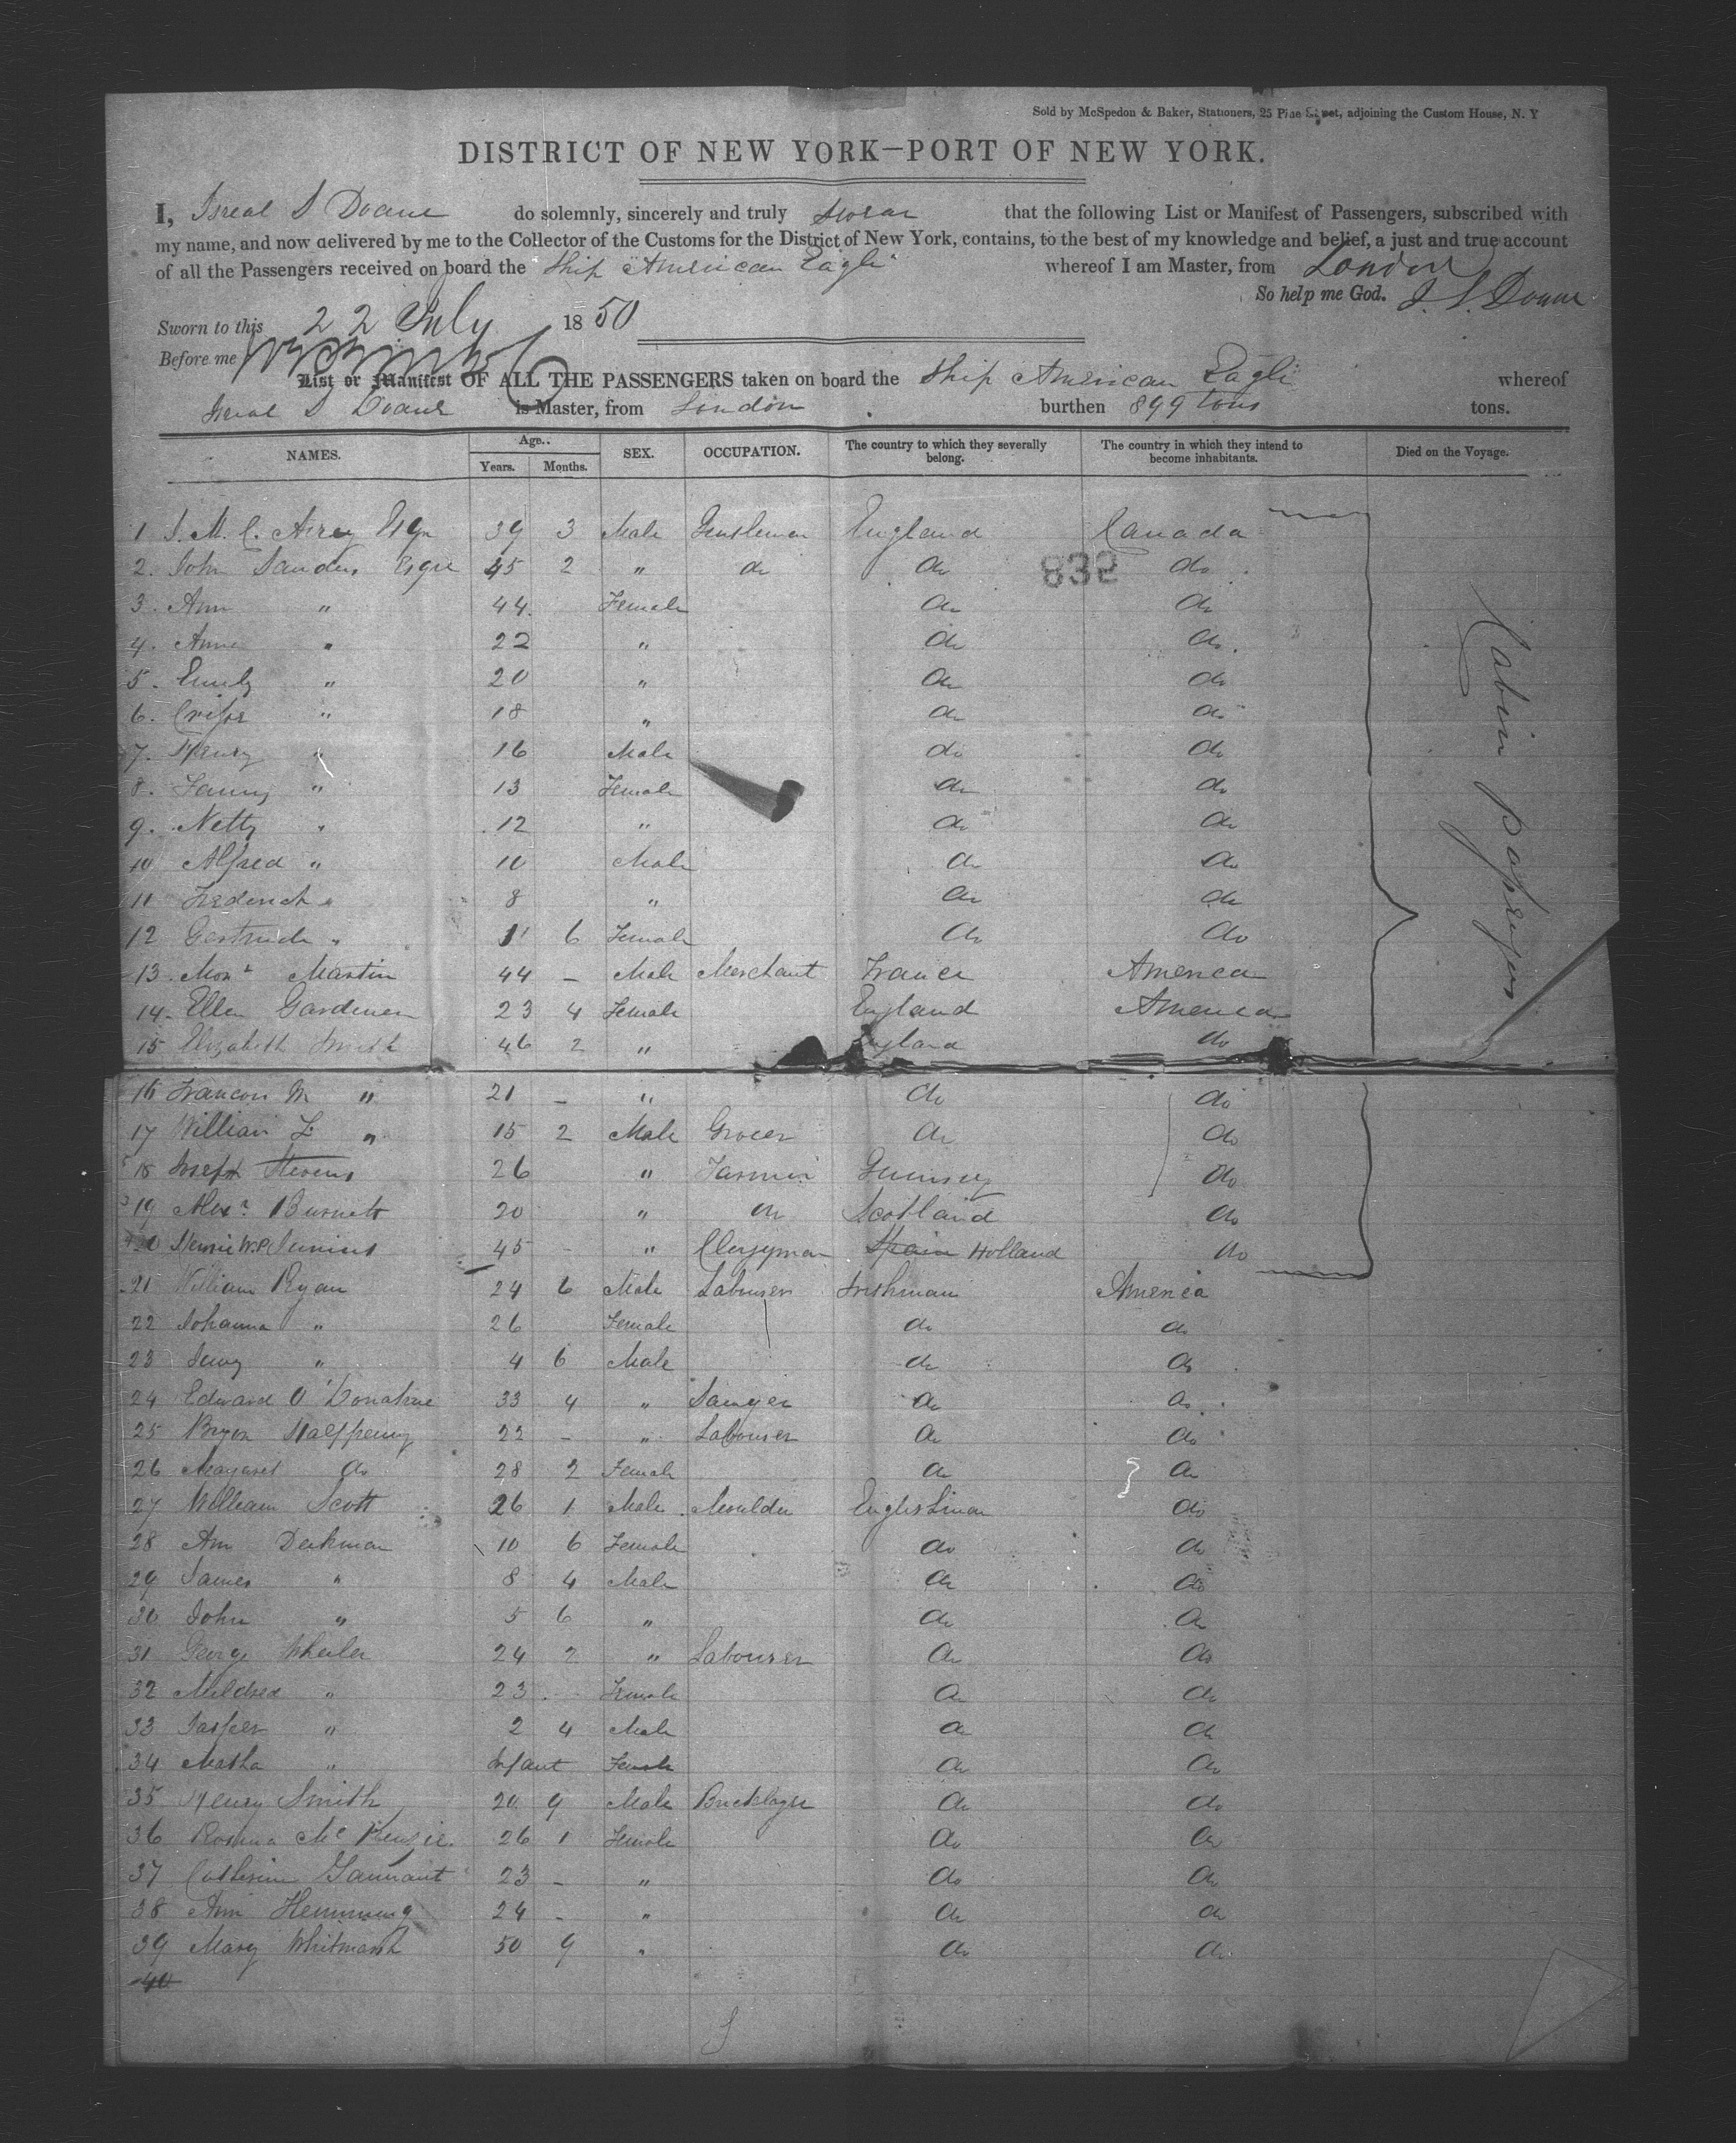 Sold by McSpedon & Baker, Stationers, 25 Pine Street, adjoining the Custom House, N. Y
DISTRICT OF NEW YORK—PORT OF NEW YORK.
I, Isreal S Doane do solemnly, sincerely and truly swear that the following List or Manifest of Passengers, subscribed with
my name, and now delivered by me to the Collector of the Customs for the District of New York, contains, to the best of my knowledge and belief, a just and true account
of all the Passengers received on board the Ship "American Eagle" whereof I am Master, from London
So help me God. I. S. Doane
Sworn to this 22 July 1850
Before me
List or Manifest OF ALL THE PASSENGERS taken on board the Ship American Eagle whereof
Isreal S Doane is Master, from London burthen 899 tons tons.
NAMES. Age.. Years. Months. SEX. OCCUPATION. The country to which they severally belong. The country in which they intend to become inhabitants. Died on the Voyage.
1 J. M. C. Airey Esqr 39 3 Male Gentleman England Canada
2. John Sanders Esqre 45 2 " do do 832 do
3. Ann " 44. Female do do
4. Anne " 22 " do do.
5. Emily " 20 " do do
6. " 18 " do do
7. Henry " 16 Male do do
8. Fanny " 13 Female do do
9. Netty " 12 " do do
10 Alfred " 10 Male do do
11 Frederick " 8 " do do
12 Gertrude " 1 6 Female do do
13. Monr Martin 44 - Male Merchant France America
14. Ellen Gardener 23 4 Female England America
15 Elizabeth Smith 46 2 " England do
Cabin passengers
16 M " 21 - " do do
17 William F " 15 2 Male Grocer do do
18 Joseph Stevens 26 " Farmer Guernsey do
19 Alexr Burnett 20 " do Scotland do
20 W.P. Junius 45 - " Clergyman Spain Holland do
21 William Ryan 24 6 Male Labourer Irishman America
22 Johanna " 26 Female do do
23 " 4 6 Male do do
24 Edward O'Donahue 33 4 " Sawyer do do
25 Bryon Halfpenny 22 - " Labourer do do
26 Margaret do 28 2 Female do do
27 William Scott 26 1 Male Moulder Englishman do
28 Ann Deekman 10 6 Female do do
29 James " 8 4 Male do do
30 John " 5 6 " do do
31 George Wheeler 24 2 " Labourer do do
32 Mildred " 23 - Female do do
33 Jasper " 2 4 Male do do
34 Martha " Infant Female do do
35 Henry Smith 20 9 Male Bricklayer do do
36 Rosina McKenzie 26 1 Female do do
37 Catherine Gannant 23 - " do do
38 Ann Hemming 24 - " do do
39 Mary Whitmarsh 50 9 " do do
40